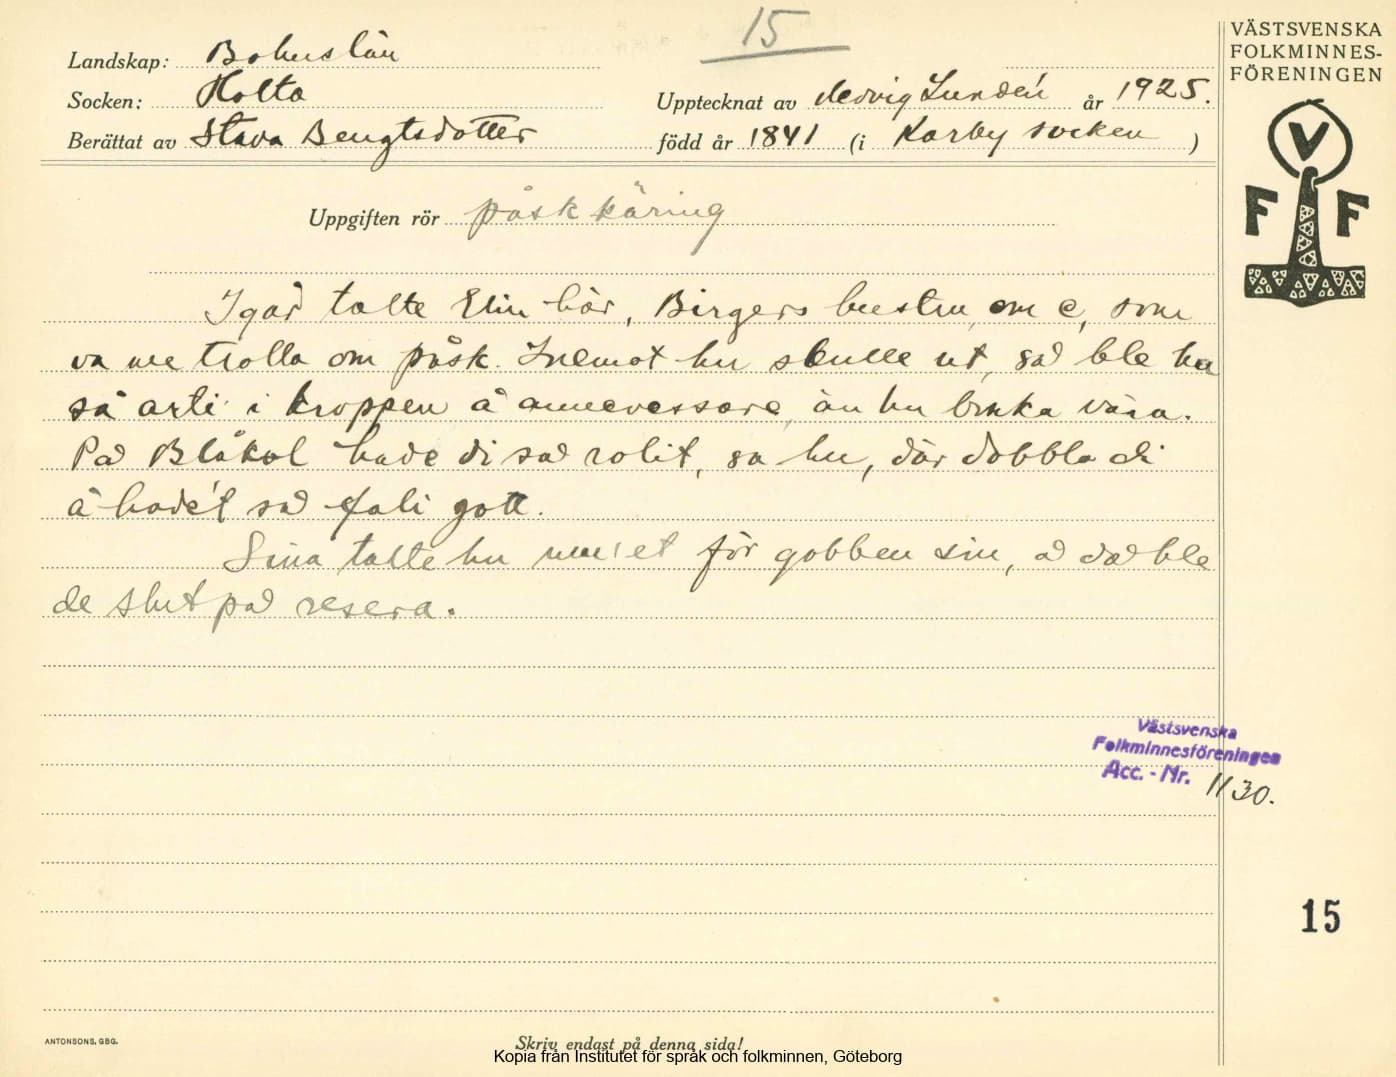 15
VÄSTSVENSKA
FOLKMINNES-
FÖRENINGEN
V
F F
Landskap: Bohuslän
Socken: Holta
Upptecknat av Hedvig Lundén år 1925.
Berättat av Stava Bengtsdotter född år 1841 (i Karby socken)
Uppgiften rör påskkäring
Igår talte Elin här, Birgers hustru, om e, som
va me trolla om påsk. Inemot hu skulle ut, så ble hu
så arti i kroppen å annevessare, än hu bruka vara.
På Blåkol hade di så rolit, sa hu, där dobbla di
å hade't så fali gott.
Sina talte hu um'et för gobben sin, å då ble
de slut på resera.
Västsvenska
Folkminnesföreningen
Acc. - Nr. 1130.
15
ANTONSONS, GBG.
Skriv endast på denna sida!
Kopia från Institutet för språk och folkminnen, Göteborg